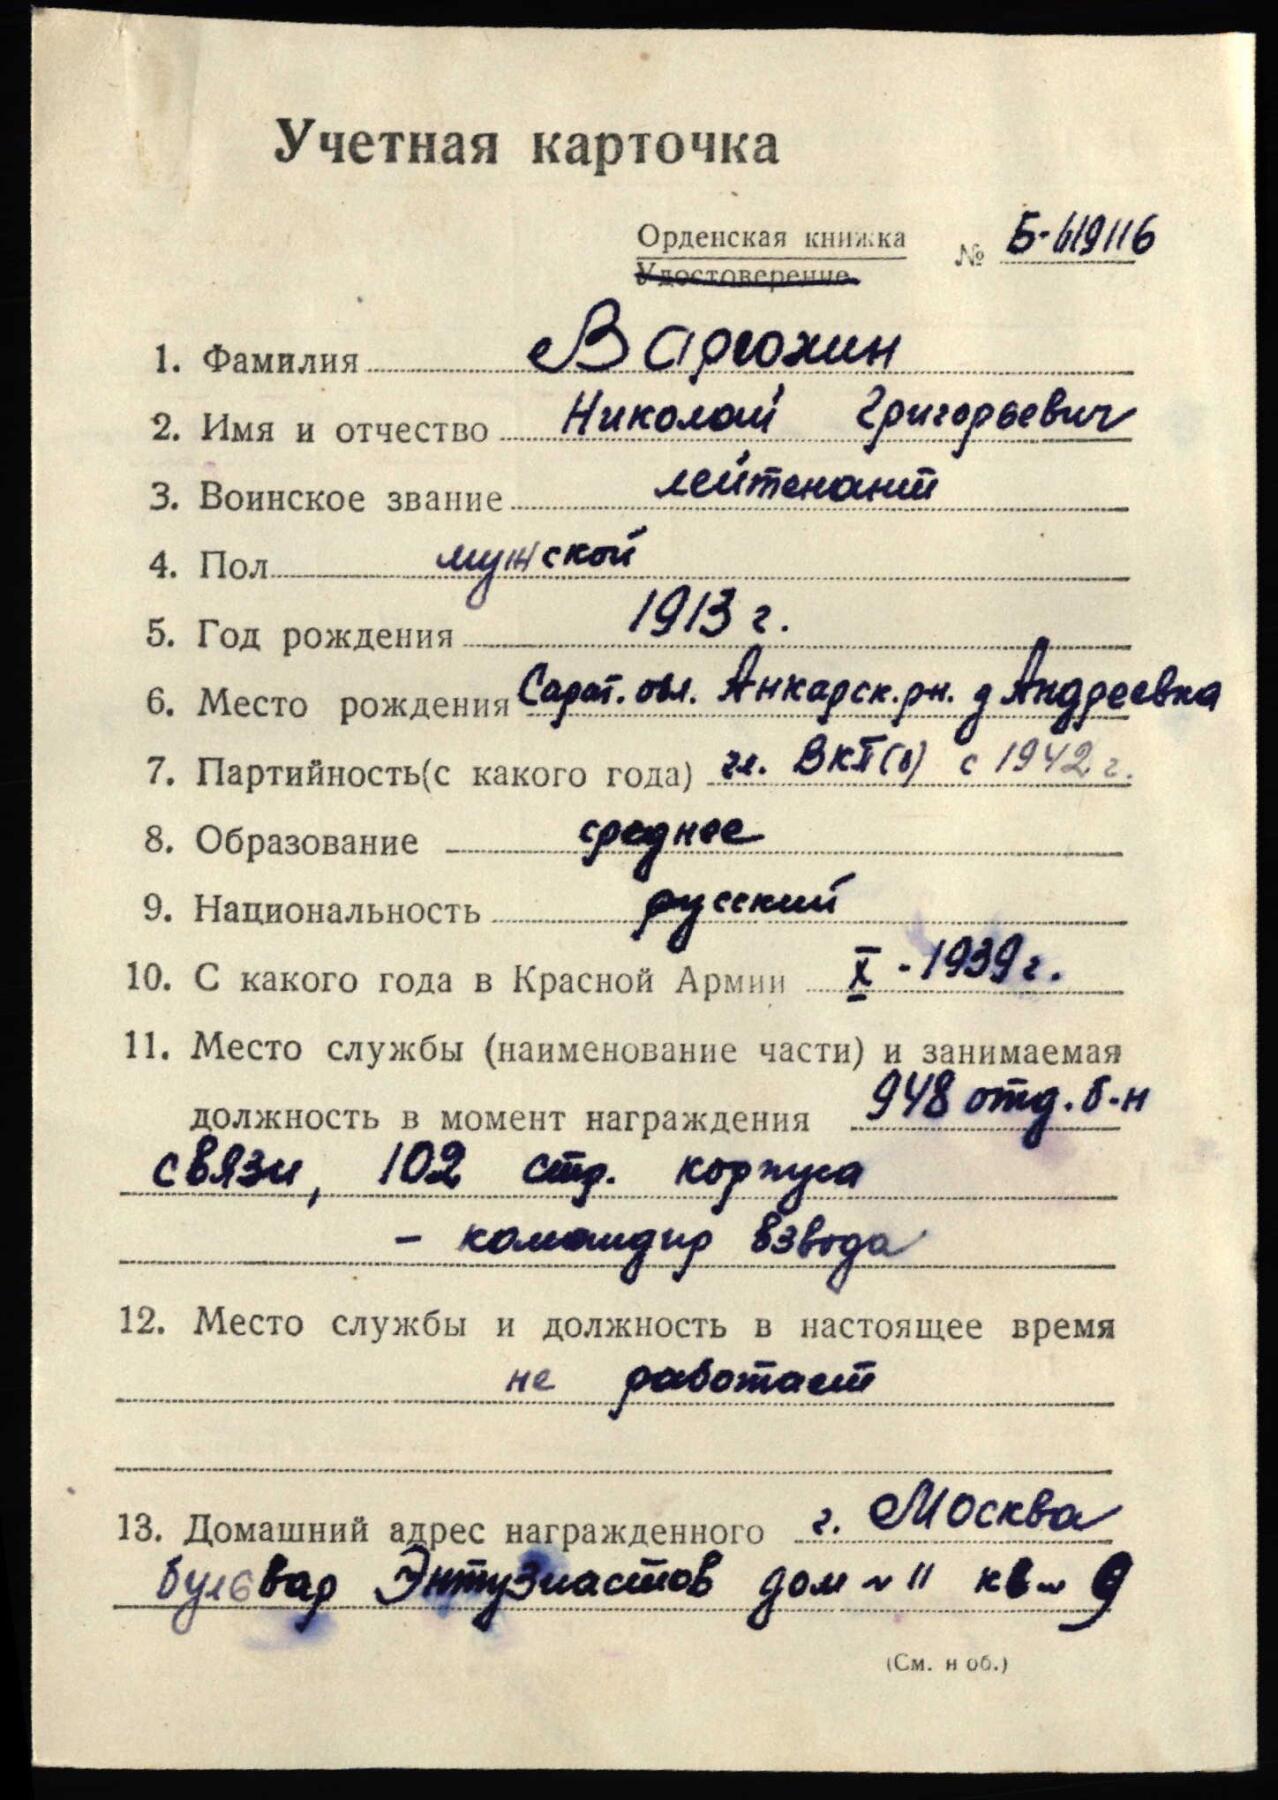 Учетная карточка
Орденская книжка
Удостоверение
№ Б-619116
1. Фамилия Варгохин
2. Имя и отчество Николай Григорьевич
3. Воинское звание лейтенант
4. Пол мужской
5. Год рождения 1913 г.
6. Место рождения Сарат. обл. Анкарск. рн. д Андреевка
7. Партийность(с какого года) чл. ВКП(б) с 1942 г.
8. Образование среднее
9. Национальность русский
10. С какого года в Красной Армии X - 1939 г.
11. Место службы (наименование части) и занимаемая
должность в момент награждения 948 отд. б-н
связи, 102 стр. корпуса
- командир взвода
12. Место службы и должность в настоящее время
не работает
13. Домашний адрес награжденного г. Москва
бульвар Энтузиастов дом ~ 11 кв ~ 9
(См. н об.)